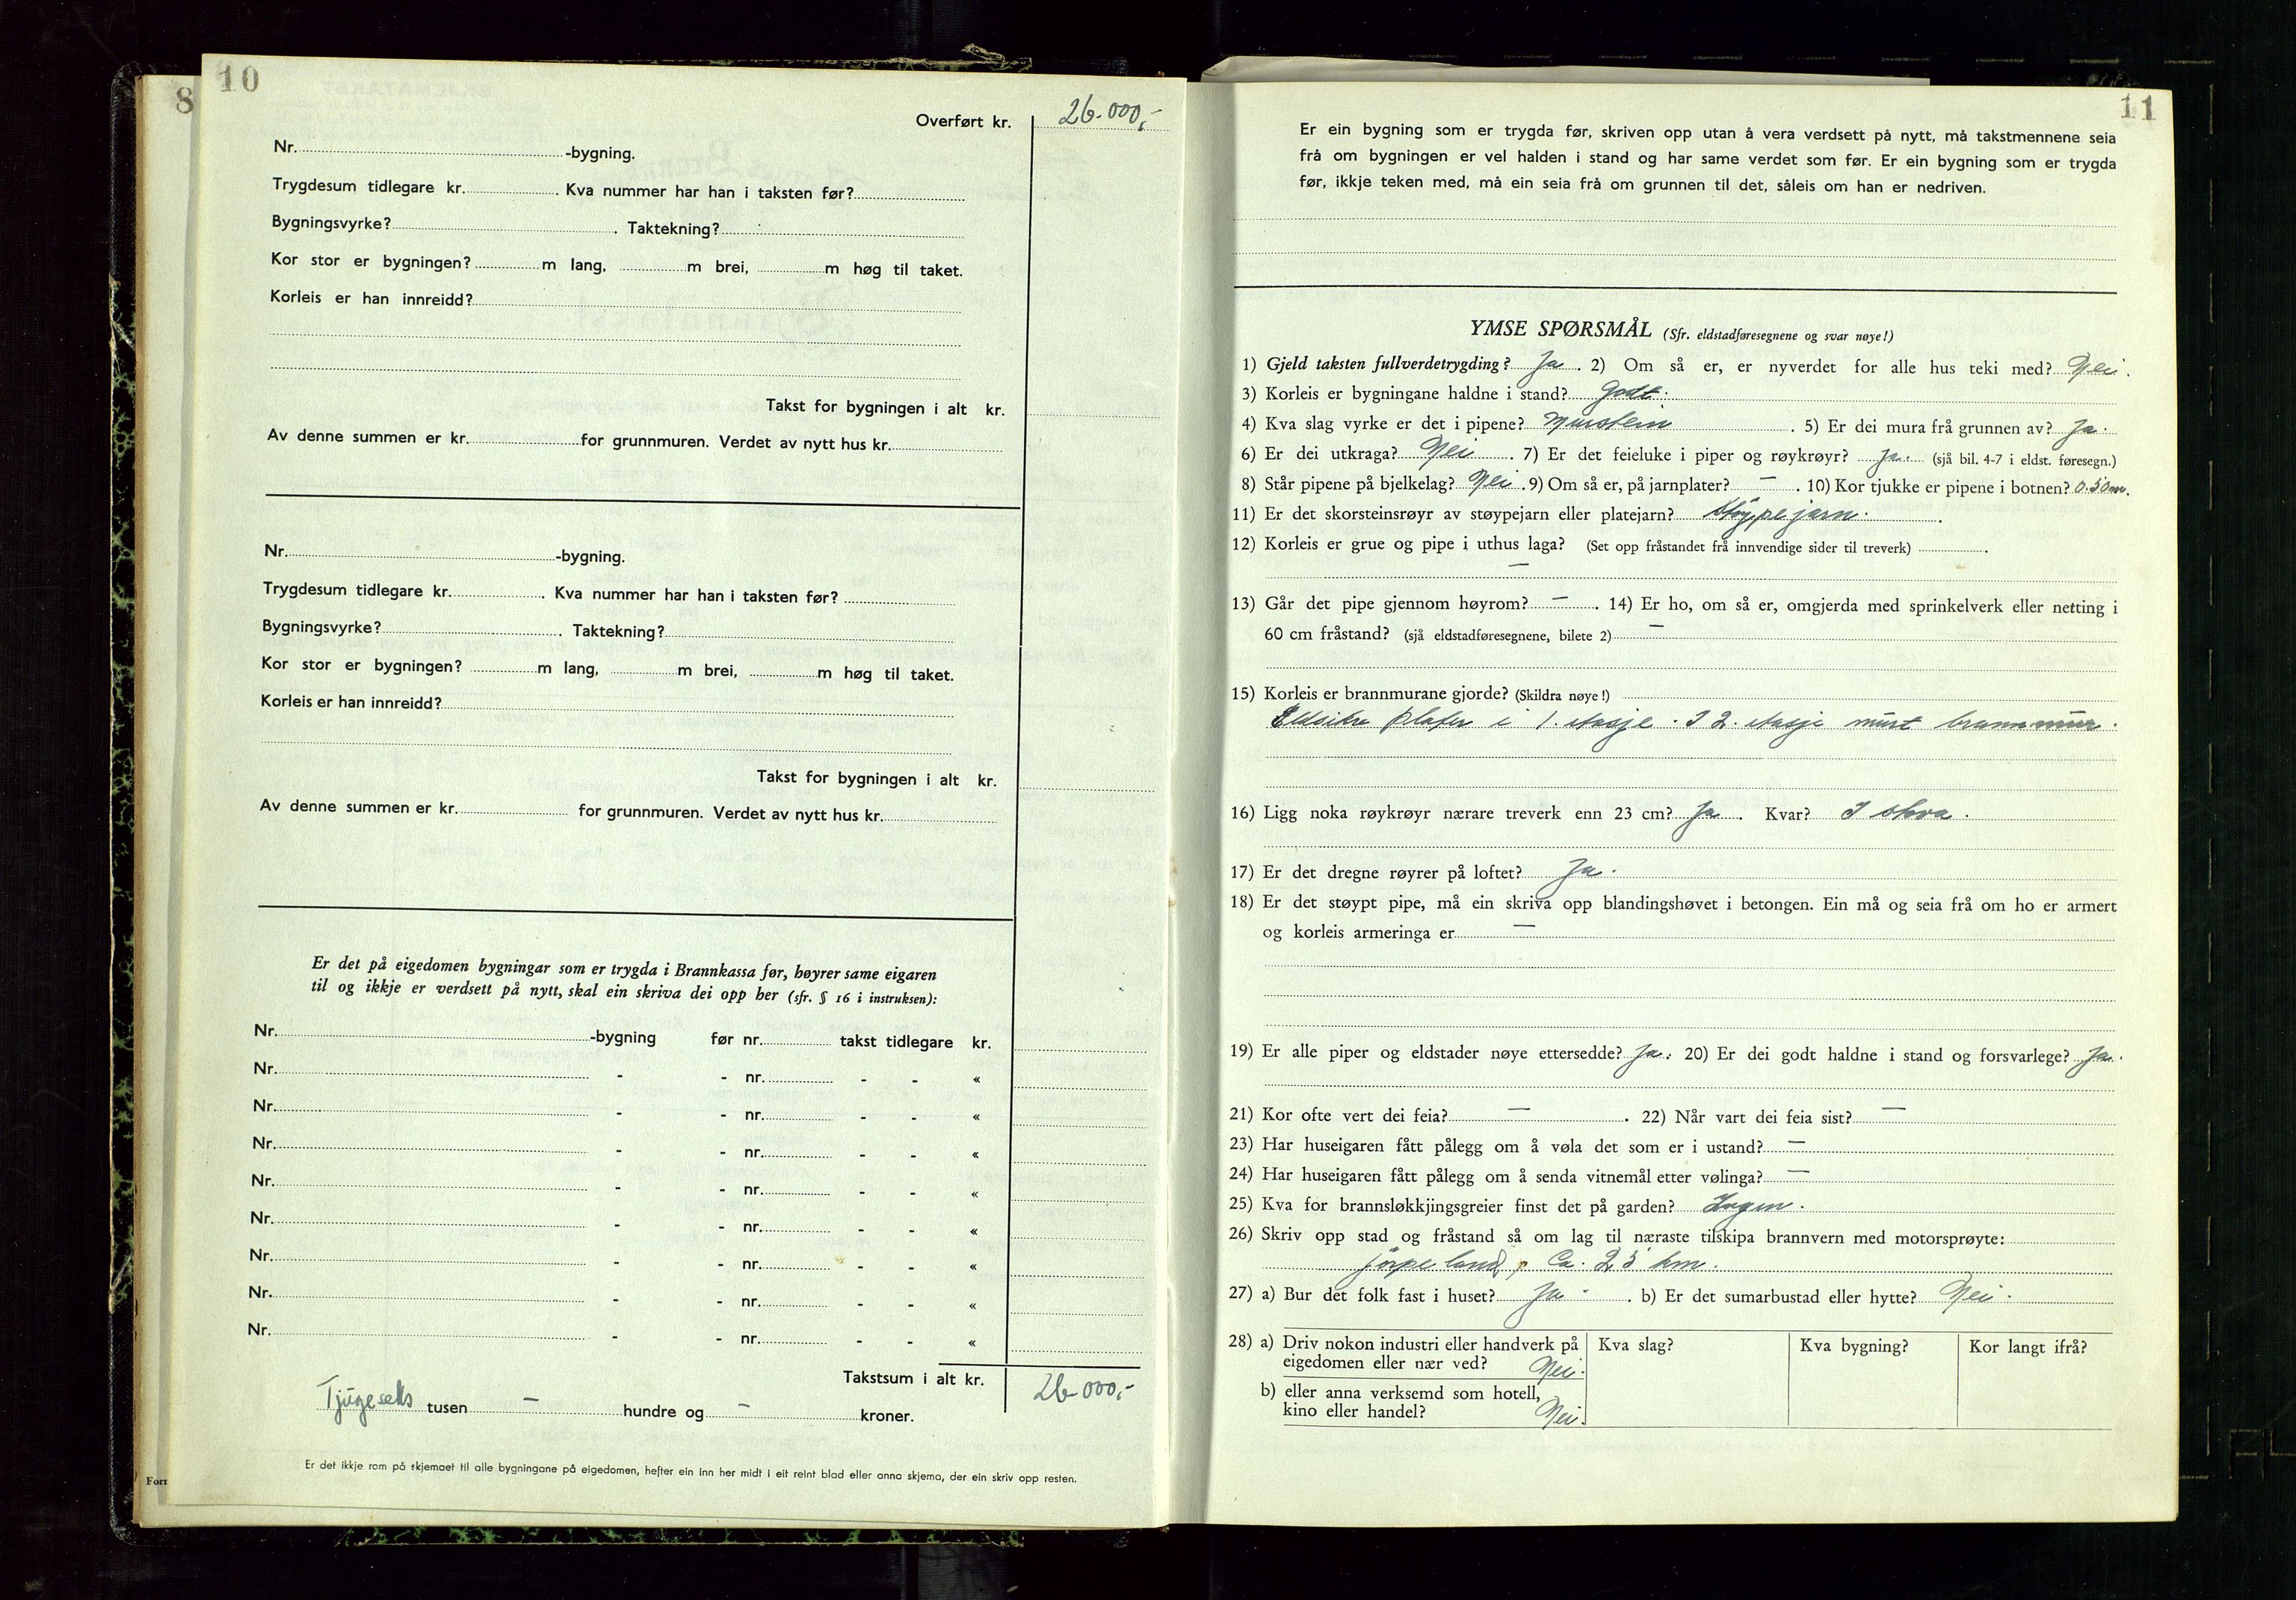 8
10
Overført kr. 26.000,-
Nr. -bygning.
Trygdesum tidlegare kr. . Kva nummer har han i taksten før?
Bygningsvyrke? . Taktekning?
Kor stor er bygningen? m lang, m brei, m høg til taket.
Korleis er han innreidd?
Takst for bygningen i alt kr.
Av denne summen er kr. for grunnmuren. Verdet av nytt hus kr.
Nr. -bygning.
Trygdesum tidlegare kr. . Kva nummer har han i taksten før?
Bygningsvyrke? . Taktekning?
Kor stor er bygningen? m lang, m brei, m høg til taket.
Korleis er han innreidd?
Takst for bygningen i alt kr.
Av denne summen er kr. for grunnmuren. Verdet av nytt hus kr.
Er det på eigedomen bygningar som er trygda i Brannkassa før, høyrer same eigaren
til og ikkje er verdsett på nytt, skal ein skriva dei opp her (sfr. § 16 i instruksen):
Nr. -bygning før nr. takst tidlegare kr.
Nr. - - nr. - - «
Nr. - - nr. - - «
Nr. - - nr. - - «
Nr. - - nr. - - «
Nr. - - nr. - - «
Nr. - - nr. - - «
Nr. - - nr. - - «
Nr. - - nr. - - «
Takstsum i alt kr. 26.000,-
Tjugeseks tusen — hundre og — kroner.
Er det ikkje rom på skjemaet til alle bygningane på eigedomen, hefter ein inn her midt i eit reint blad eller anna skjema, der ein skriv opp resten.
Forr
11
Er ein bygning som er trygda før, skriven opp utan å vera verdsett på nytt, må takstmennene seia
frå om bygningen er vel halden i stand og har same verdet som før. Er ein bygning som er trygda
før, ikkje teken med, må ein seia frå om grunnen til det, såleis om han er nedriven.
YMSE SPØRSMÅL (Sfr. eldstadføresegnene og svar nøye!)
1) Gjeld taksten fullverdetrygding? Ja. 2) Om så er, er nyverdet for alle hus teki med? Nei.
3) Korleis er bygningane haldne i stand? Godt.
4) Kva slag vyrke er det i pipene? Murstein . 5) Er dei mura frå grunnen av? Ja.
6) Er dei utkraga? Nei . 7) Er det feieluke i piper og røykrøyr? Ja. (sjå bil. 4-7 i eldst. føresegn.)
8) Står pipene på bjelkelag? Nei . 9) Om så er, på jarnplater? — . 10) Kor tjukke er pipene i botnen? 0.50m.
11) Er det skorsteinsrøyr av støypejarn eller platejarn? Støypejarn.
12) Korleis er grue og pipe i uthus laga? (Set opp fråstandet frå innvendige sider til treverk) .
—
13) Går det pipe gjennom høyrom? — . 14) Er ho, om så er, omgjerda med sprinkelverk eller netting i
60 cm fråstand? (sjå eldstadføresegnene, bilete 2) —
15) Korleis er brannmurane gjorde? (Skildra nøye!)
Eldsikre plater i 1. etasje. I 2. etasje murt brannmur.
16) Ligg noka røykrøyr nærare treverk enn 23 cm? Ja . Kvar? I stova.
17) Er det dregne røyrer på loftet? Ja.
18) Er det støypt pipe, må ein skriva opp blandingshøvet i betongen. Ein må og seia frå om ho er armert
og korleis armeringa er —
19) Er alle piper og eldstader nøye ettersedde? Ja. 20) Er dei godt haldne i stand og forsvarlege? Ja.
21) Kor ofte vert dei feia? — . 22) Når vart dei feia sist? —
23) Har huseigaren fått pålegg om å vøla det som er i ustand? —
24) Har huseigaren fått pålegg om å senda vitnemål etter vølinga? —
25) Kva for brannsløkkjingsgreier finst det på garden? Ingen.
26) Skriv opp stad og fråstand så om lag til næraste tilskipa brannvern med motorsprøyte:
Jørpeland, Ca. 25 km.
27) a) Bur det folk fast i huset? Ja. . b) Er det sumarbustad eller hytte? Nei.
28) a) Driv nokon industri eller handverk på Kva slag? Kva bygning? Kor langt ifrå?
eigedomen eller nær ved? Nei.
b) eller anna verksemd som hotell,
kino eller handel? Nei.